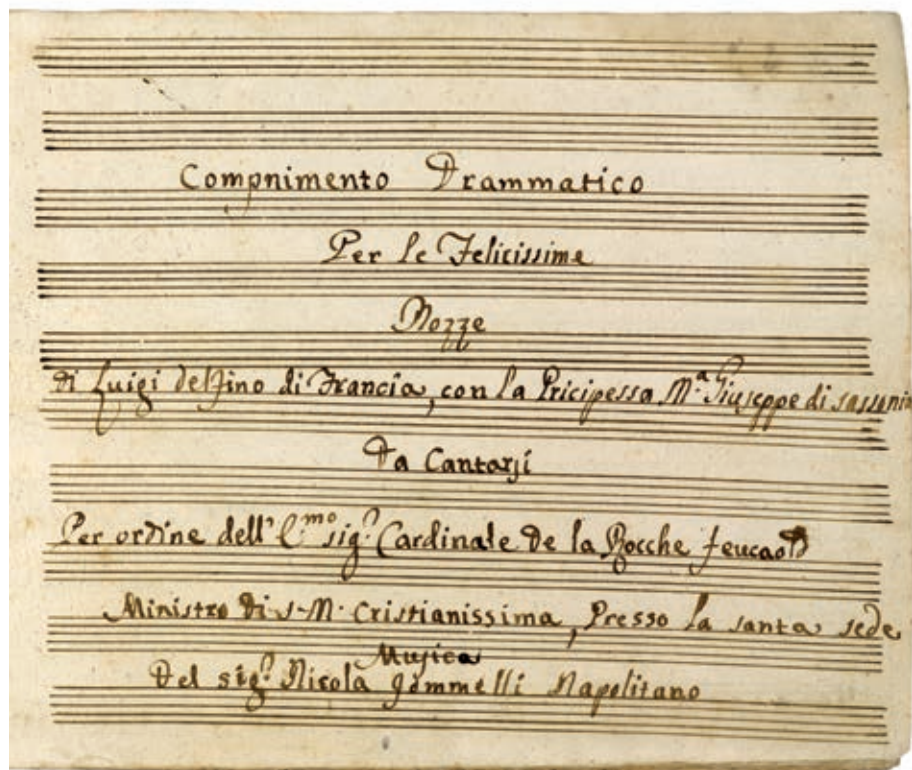 Compnimento Drammatico
Per le Felicissime
Nozze
di Luigi delfino di Francia, con la Pricipessa M.ª Giuseppe di sassonia
Da Cantarsi
Per ordine dell' E.mo sig.r Cardinale de la Rocche feucaold
Ministro di S. M. Cristianissima, Presso la santa sede
Musica
Del sig.r Nicola Jommelli Napolitano